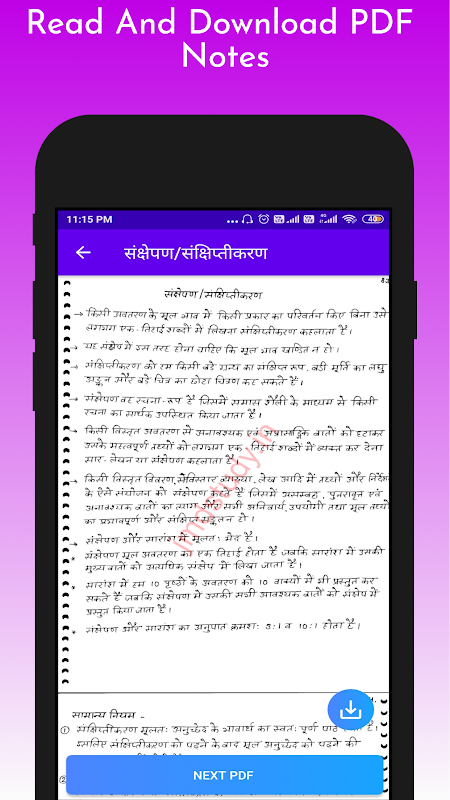 Read And Download PDF
Notes
11:15 PM
40
संक्षेपण/संक्षिप्तीकरण
संक्षेपण/संक्षिप्तीकरण
→ किसी अवतरण के मूल भाव में किसी प्रकार का परिवर्तन किए बिना उसे
लगभग एक-तिहाई शब्दों में लिखना संक्षिप्तीकरण कहलाता है।
→ यह संक्षेप में इस तरह होना चाहिए कि मूल भाव खण्डित न हो।
→ संक्षिप्तीकरण को हम किसी बड़े ग्रन्थ का संक्षिप्त रूप, बड़ी मूर्ति का लघु
अङ्कन और बड़े चित्र का छोटा चित्रण कह सकते हैं।
→ संक्षेपण वह रचना-रूप है जिसमें समास शैली के माध्यम से किसी
रचना का सार्थक उपस्थित किया जाता है।
→ किसी विस्तृत अवतरण से अनावश्यक एवं अप्रासङ्गिक बातों को हटाकर
उसके महत्वपूर्ण तथ्यों को लगभग एक-तिहाई शब्दों में व्यक्त कर देना
सार-लेखन या संक्षेपण कहलाता है।
→ किसी विस्तृत विवरण, सविस्तार व्याख्या, लेख आदि में तथ्यों और निर्देशों
के ऐसे संयोजन को संक्षेपण कहते हैं जिसमें असम्बद्ध, पुनरावृत एवं
अनावश्यक बातों का त्याग और सभी अनिवार्य, उपयोगी तथा मूल तथ्यों
का प्रभावपूर्ण और संक्षिप्त सङ्कलन हो।
→ संक्षेपण और सारांश में मूलतः भेद है।
* संक्षेपण मूल अवतरण का एक तिहाई होता है जबकि सारांश में उसकी
मुख्य बातों को अत्यधिक संक्षेप में लिखा जाता है।
* सारांश में हम 10 पृष्ठों के अवतरण को 10 वाक्यों में भी प्रस्तुत कर
सकते हैं जबकि संक्षेपण में उसकी सभी आवश्यक बातों को संक्षेप में
प्रस्तुत किया जाता है।
* संक्षेपण और सारांश का अनुपात क्रमशः 3:1 व 10:1 होता है।
सामान्य नियम -
① संक्षिप्तीकरण मूलतः अनुच्छेद के भावार्थ का स्वतः पूर्ण पाठ होता है।
इसलिए संक्षिप्तीकरण को पढ़ने के बाद मूल अनुच्छेद को पढ़ने की
NEXT PDF